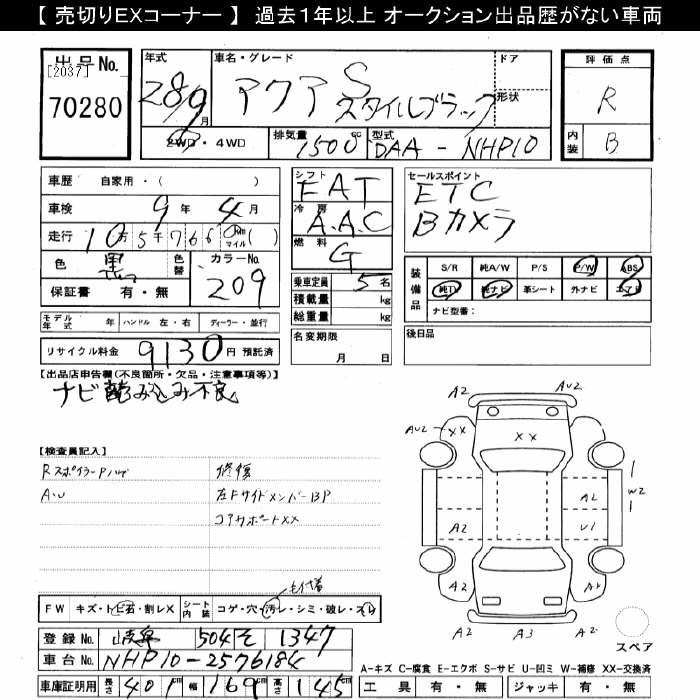 【 売切りEXコーナー 】 過去1年以上 オークション出品歴がない車両
出品No.
[2037]
70280
年式 車名・グレード ドア
28/9月 アクア S スタイルブラック 形状
2WD・4WD 排気量 1500cc 型式 DAA-NHP10
評価点
R
内装 B
車歴 自家用・( )
車検 9年 4月
走行 10万5千766 Km マイル ( )
色 黒 色替 カラーNo. 209
保証書 有・無
シフト FAT
冷房 A.A.C
燃料 G
乗車定員 5名
積載量 kg
総重量 kg
セールスポイント
ETC
Bカメラ
装備品 S/R 純A/W P/S P/W ABS
純TV 純ナビ 革シート 外ナビ エアB
ナビ型番:
モデル年式 年 ハンドル 左・右 ディーラー・並行
リサイクル料金 9130円 預託済
名変期限 月 日
後日品
【出品店申告欄(不良箇所・欠品・注意事項等)】
ナビ 読み込み不良
【検査員記入】
Rスポイラー 修復
A・U 左Fサイドメンバー BP
コアサポートXX
A2 AU2
AU2 XX XX
A2 W2
A2 U1
A2
A2 A3
スペア
FW キズ・トビ石・割レX シート内装 コゲ・穴・汚レ・シミ・破レ・スレ
登録No. 504 そ 1347
車台No. NHP10-2576184
車庫証明用 長さ 401cm 幅 169cm 高さ 145cm
A-キズ C-腐食 E-エクボ S-サビ U-凹ミ W-補修 XX-交換済
工具 有・無 ジャッキ 有・無